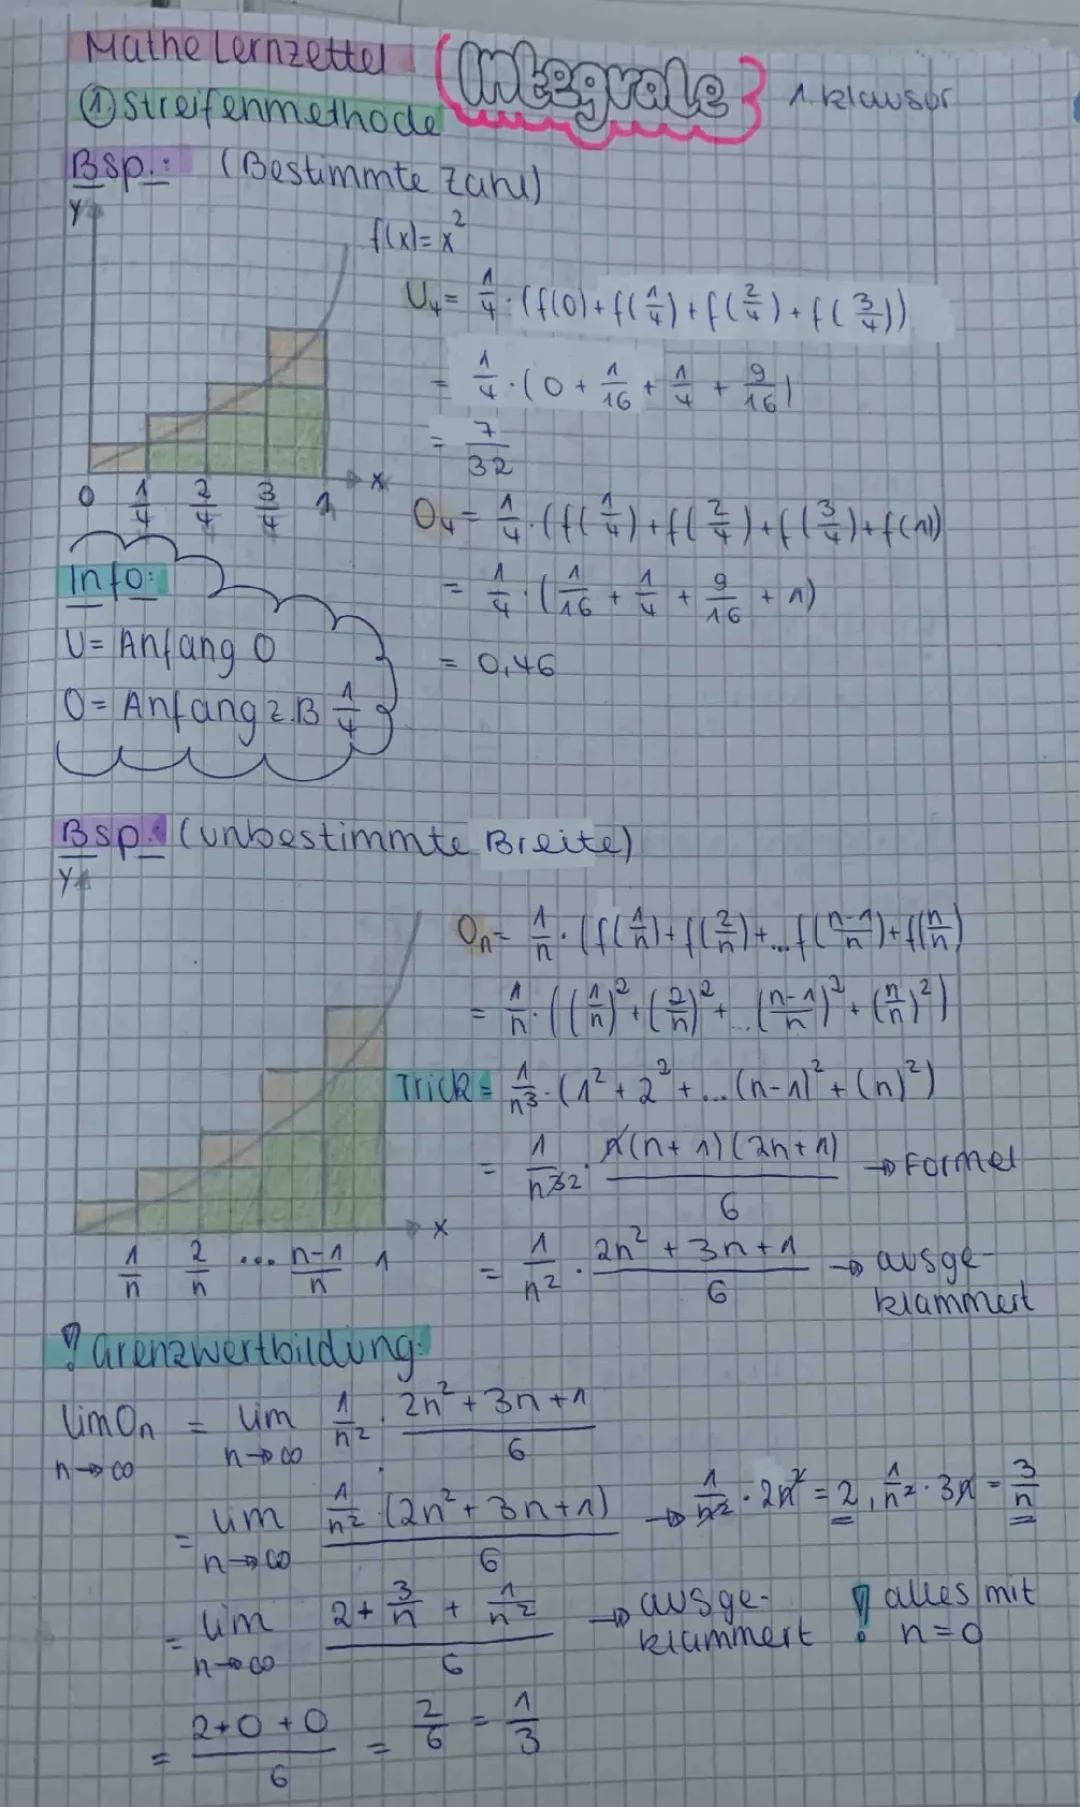 Mathe Lernzettel (Integrale) 1. Klausur
① Streifenmethode
Bsp.: (Bestimmte Zahl)
y
f(x)=x²
U₄= 1/4 · (f(0)+f(1/4)+f(2/4)+f(3/4))
= 1/4 · (0 + 1/16 + 1/4 + 9/16)
= 7/32
0 1/4 2/4 3/4 1 x
O₄= 1/4 · (f(1/4)+f(2/4)+f(3/4)+f(1))
= 1/4 · (1/16 + 1/4 + 9/16 + 1)
= 0,46
Info:
U= Anfang 0
O= Anfang z.B 1/4
Bsp.: (unbestimmte Breite)
y
Oₙ= 1/n · (f(1/n)+f(2/n)+...f((n-1)/n)+f(n/n)
= 1/n · ((1/n)²+(2/n)²+...((n-1)/n)²+(n/n)²)
Trick= 1/n³ · (1²+2²+...(n-1)²+(n)²)
= 1/n³² · n(n+1)(2n+1)/6 → Formel
1/n 2/n ... (n-1)/n 1 x
= 1/n² · (2n²+3n+1)/6 → ausge-
klammert
! Grenzwertbildung:
lim Oₙ = lim 1/n² · (2n²+3n+1)/6
n→∞ n→∞
= lim (1/n² · (2n²+3n+1))/6 → 1/n² · 2n² = 2, 1/n² · 3n = 3/n
n→∞
= lim (2+3/n+1/n²)/6 → ausge-
klammert
! alles mit
n=0
n→∞
= (2+0+0)/6 = 2/6 = 1/3